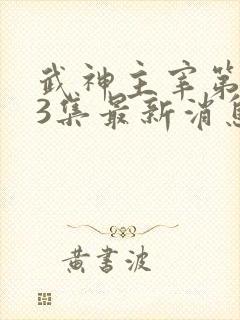 武神主宰第
3集最新消息
黄书波